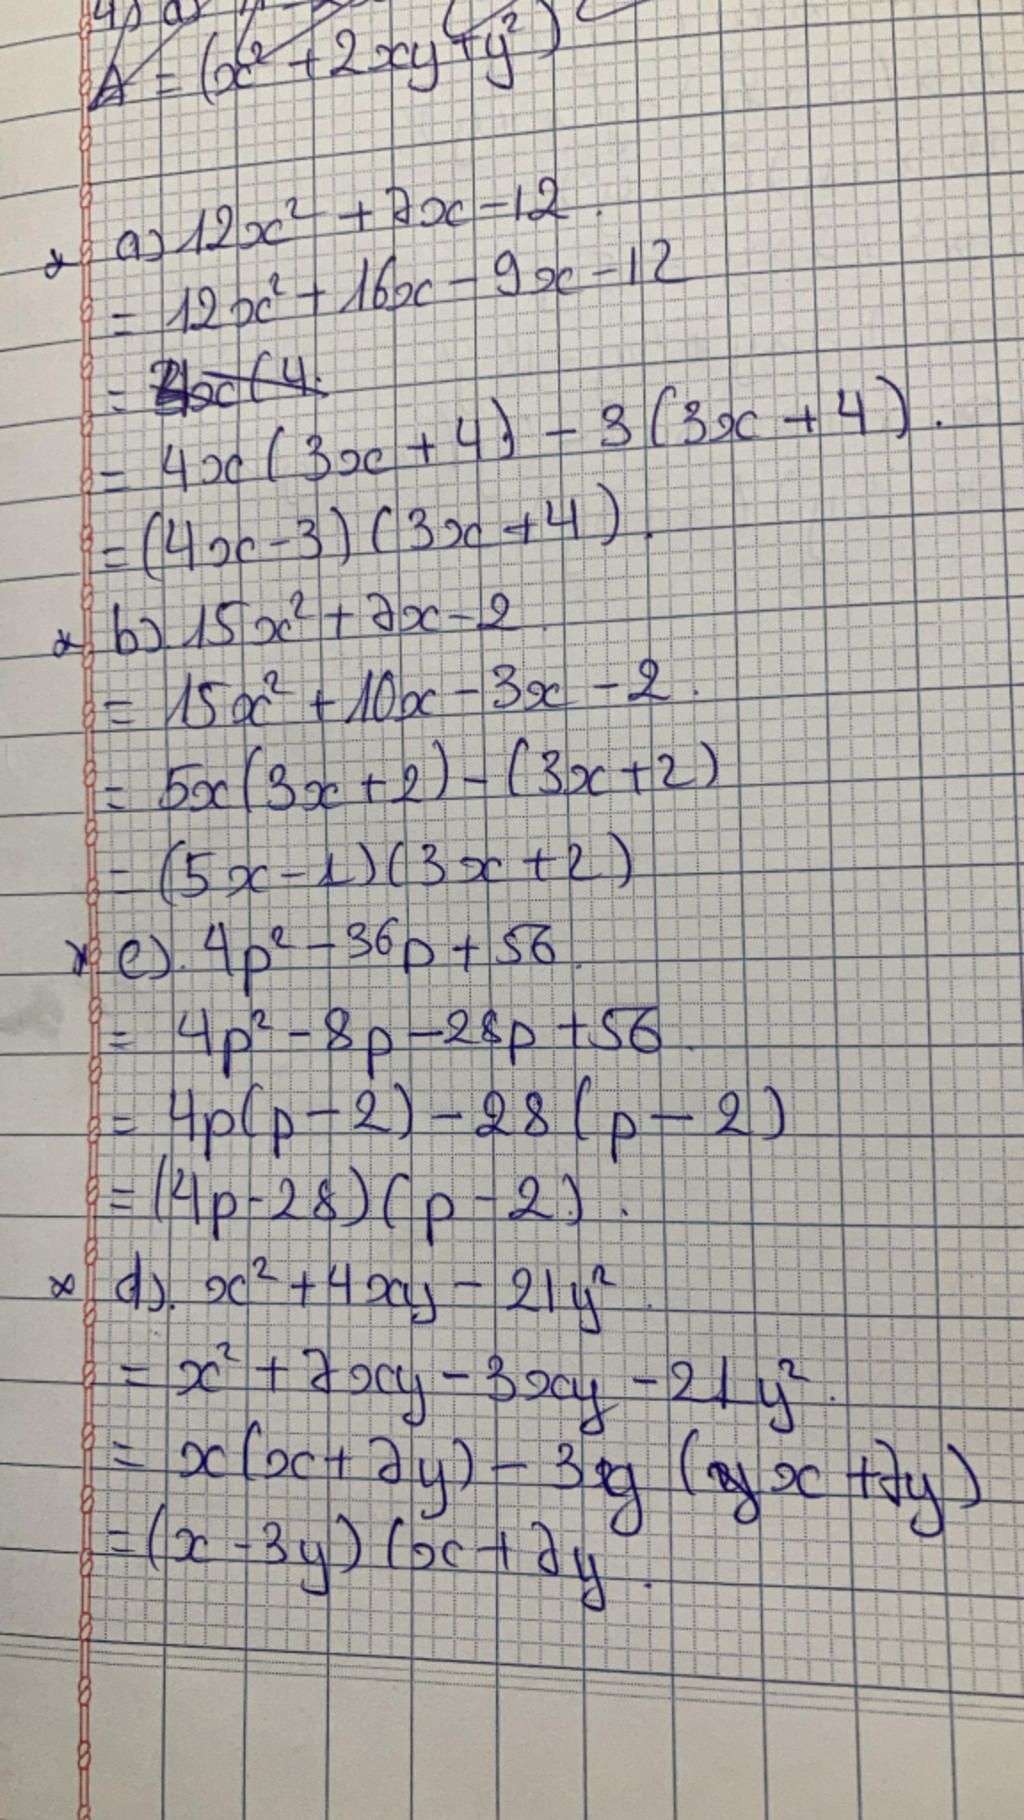 4) a)
A = (x² + 2xy + y²)
a) 12x² + 7x - 12.
= 12x² + 16x - 9x - 12
= 4x(4.
= 4x(3x + 4) - 3(3x + 4).
= (4x - 3)(3x + 4).
b) 15x² + 7x - 2.
= 15x² + 10x - 3x - 2.
= 5x(3x + 2) - (3x + 2)
= (5x - 1)(3x + 2)
c). 4p² - 36p + 56.
= 4p² - 8p - 28p + 56.
= 4p(p - 2) - 28(p - 2)
= (4p - 28)(p - 2).
d). x² + 4xy - 21y².
= x² + 7xy - 3xy - 21y².
= x(x + 7y) - 3y (x + 7y)
= (x - 3y)(x + 7y.